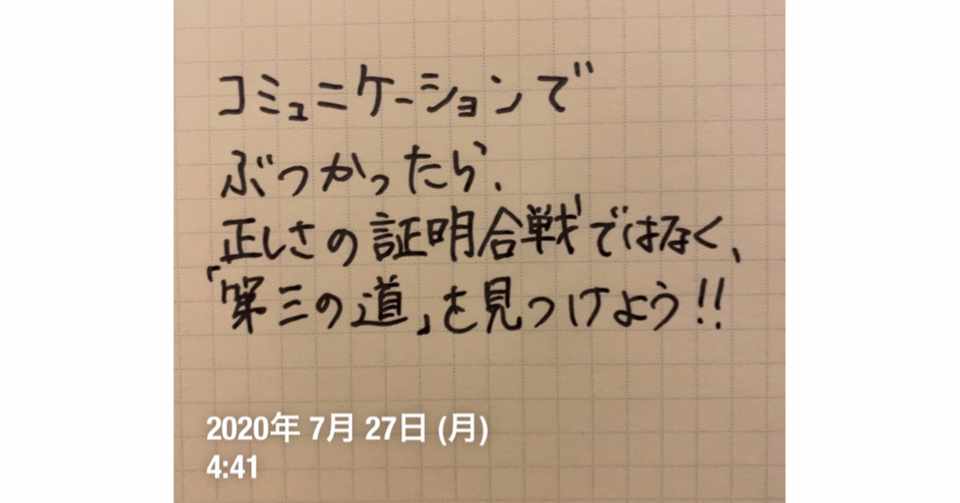 コミュニケーションで
ぶつかったら、
正しさの証明合戦ではなく、
「第三の道」を見つけよう!!
2020年 7月 27日 (月)
4:41